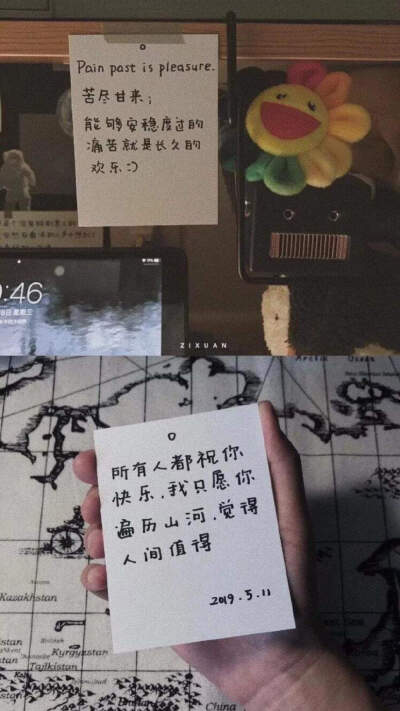 Pain past is pleasure.
苦尽甘来；
能够安稳度过的
痛苦就是长久的
欢乐:)
9:46
ZIXUAN
所有人都祝你
快乐，我只愿你
遍历山河，觉得
人间值得
2019.5.11
Kazakhstan
Kyrgyzstan
Tajikistan
China